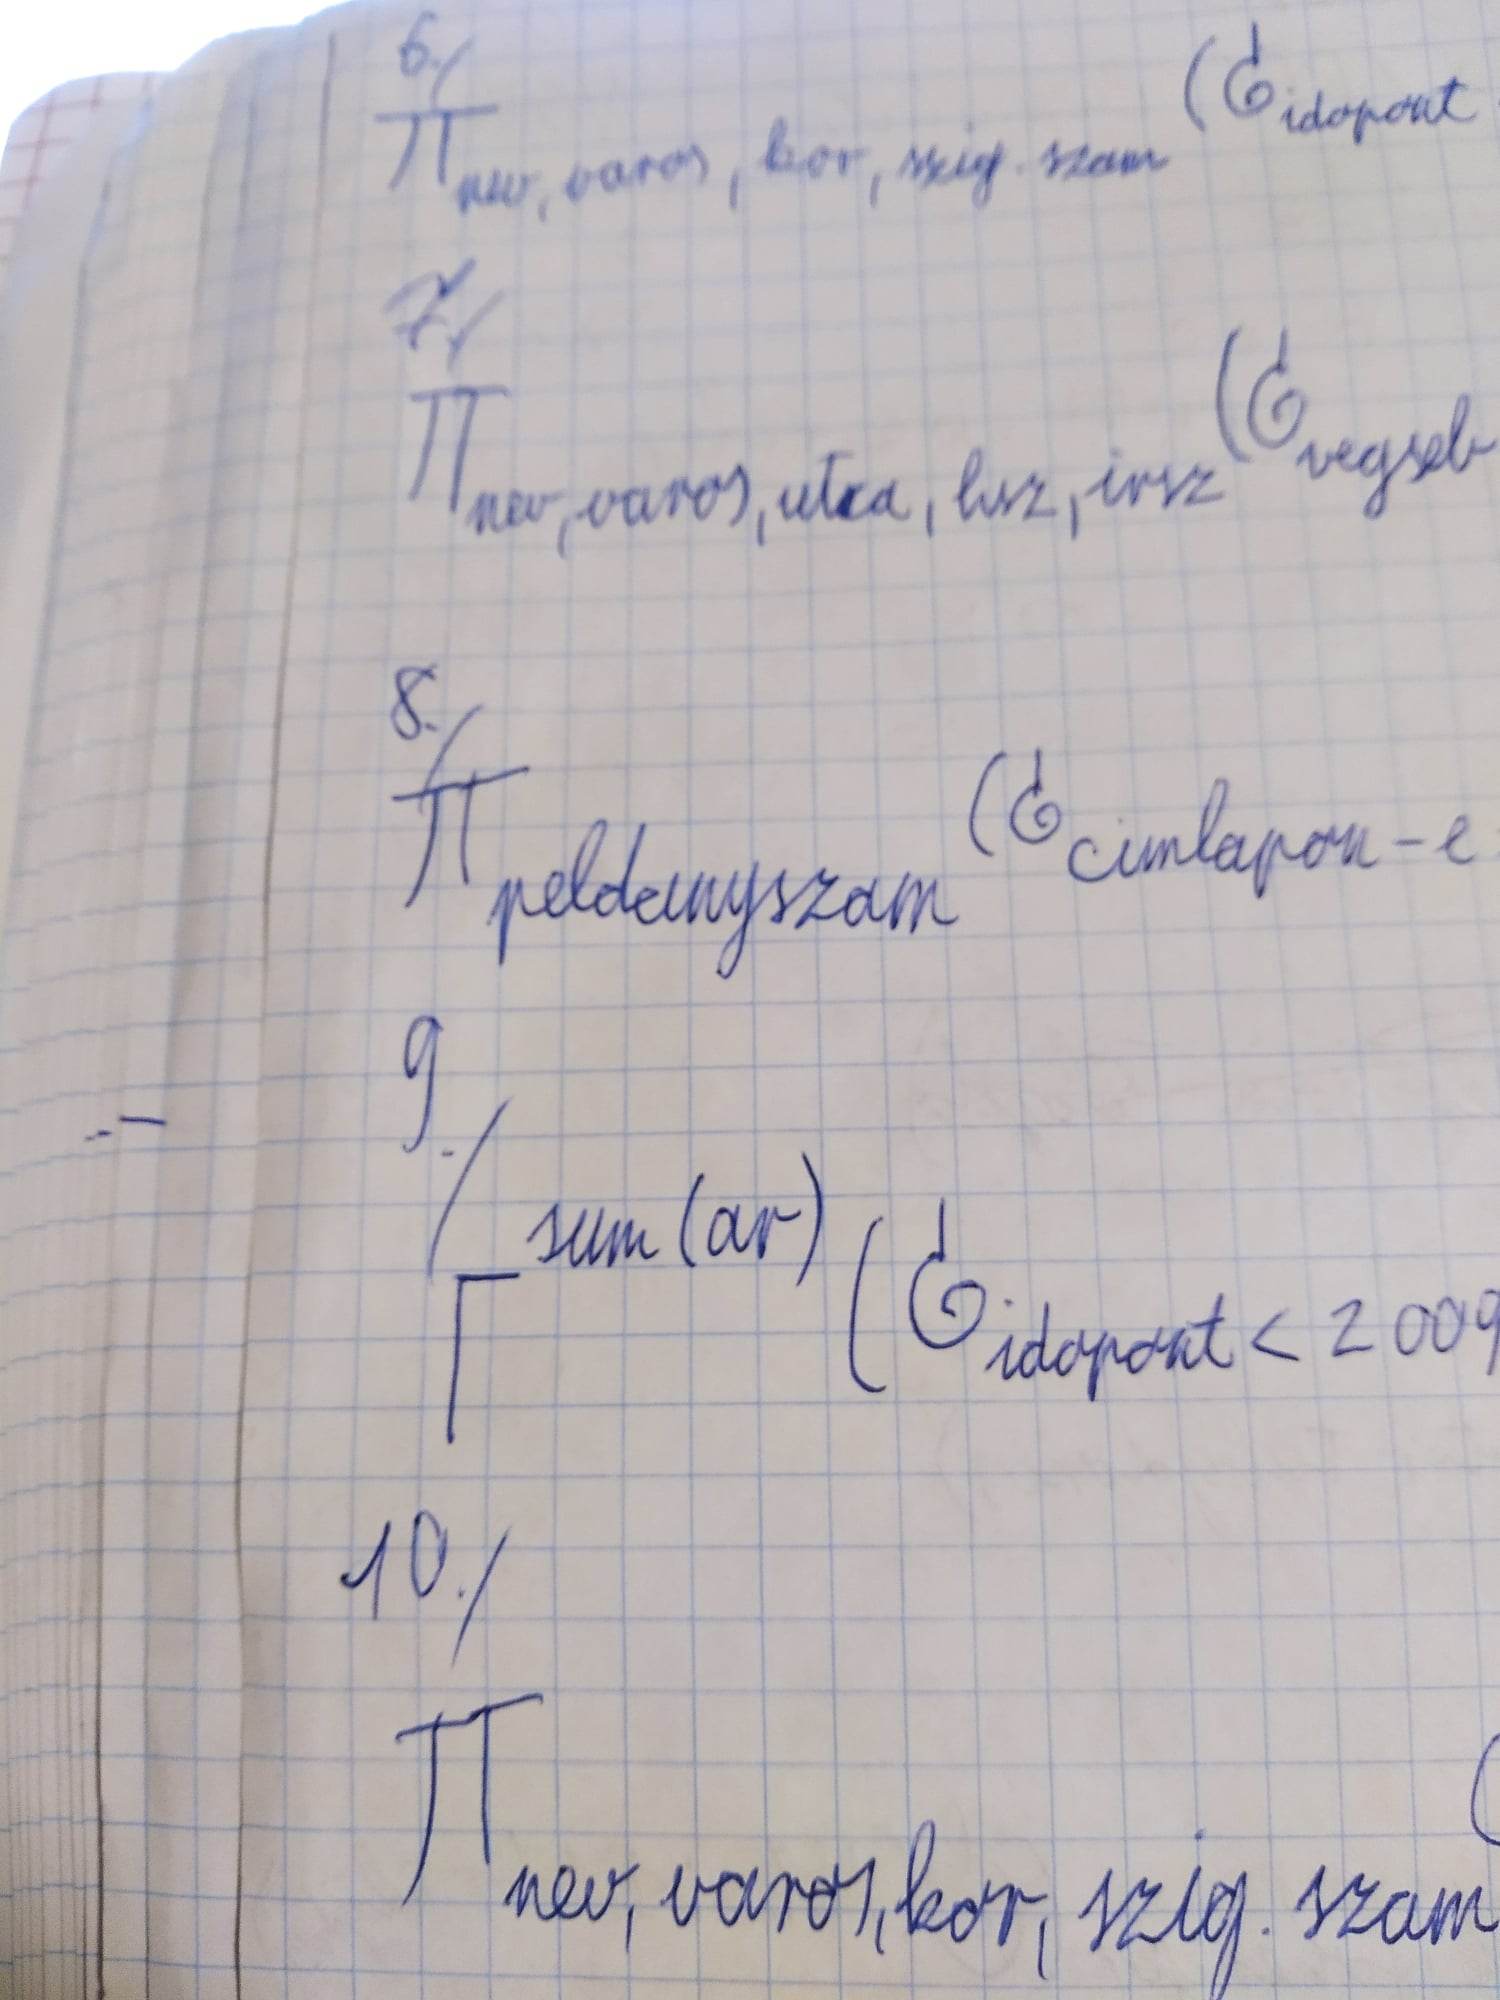 6./
π nev, varos, kor, szig. szam (σ idopont
7./
π nev, varos, utca, hsz, irsz (σ vegseb
8./
π peldanyszam (σ cimlapon-e =
9./
Γ sum(ar) (σ idopont < 2009
10./
π nev, varos, kor, szig. szam (